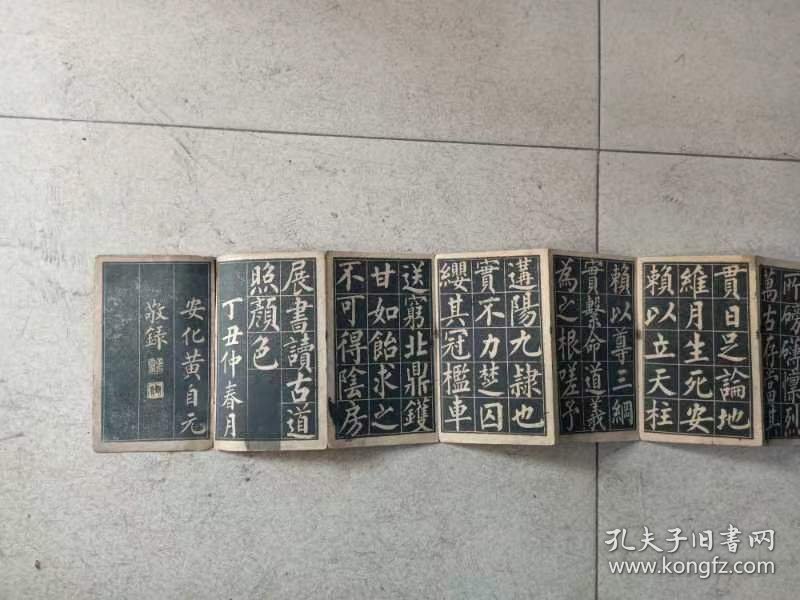 所磅礴凛列
萬古存當其
貫日足論地
維月生死安
賴以立天柱
賴以尊三綱
實繫命道義
為之根嗟予
遘陽九隸也
實不力楚囚
纓其冠檻車
送窮北鼎鑊
甘如飴求之
不可得陰房
展書讀古道
照顏色
丁丑仲春月
安化黃自元
敬録
孔夫子旧书网
www.kongfz.com